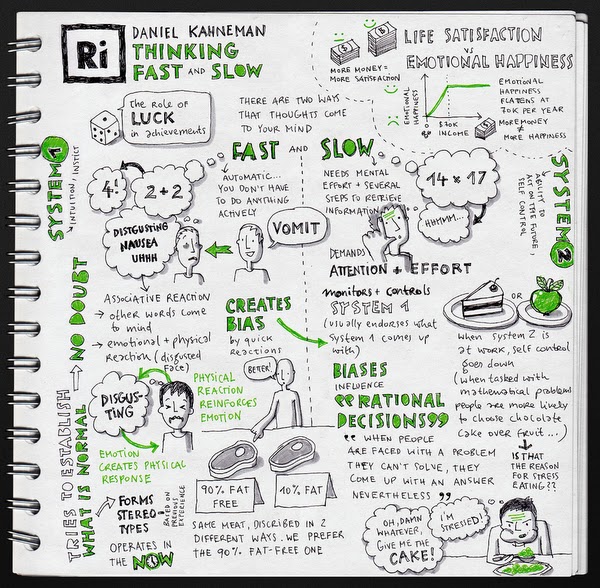 Ri
DANIEL KAHNEMAN
THINKING
FAST AND SLOW
the role of
LUCK
in achievements
THERE ARE TWO WAYS
THAT THOUGHTS COME
TO YOUR MIND
$
$
MORE MONEY =
MORE SATISFACTION
LIFE SATISFACTION
VS
EMOTIONAL HAPPINESS
EMOTIONAL
HAPPINESS
$70K
INCOME
EMOTIONAL
HAPPINESS
FLATENS AT
70K PER YEAR
MORE MONEY
≠
MORE HAPPINESS
FAST AND SLOW
SYSTEM 1
INTUITION, INSTICT
4!
2+2
AUTOMATIC...
YOU DON'T HAVE
TO DO ANYTHING
ACTIVELY
DISGUSTING
NAUSEA
UHHH
VOMIT
ASSOCIATIVE REACTION
→ other words come
to mind
→ emotional + physical
Reaction (disgusted
face)
NEEDS MENTAL
EFFORT + SEVERAL
STEPS TO RETRIEVE
INFORMATION
14 x 17
HUMMM...
DEMANDS
ATTENTION + EFFORT
SYSTEM 2
ABILITY TO
ACT ON THE FUTURE,
SELF CONTROL
monitors + controls
SYSTEM 1
(usually endorses what
System 1 comes up
with)
OR
when system 2 is
at work, self control
goes down
(when tasked with
mathematical problems
people are more likely
to choose chocolate
cake over fruit...)
IS THAT
THE REASON
FOR STRESS
EATING??
CREATES
BIAS
by quick
reactions
BIASES
INFLUENCE
"RATIONAL
DECISIONS"
"WHEN PEOPLE
ARE FACED WITH A PROBLEM
THEY CAN'T SOLVE, THEY
COME UP WITH AN ANSWER
NEVERTHELESS"
TRIES TO ESTABLISH
WHAT IS NORMAL
→ NO DOUBT
DISGUS-
TING
PHYSICAL
REACTION
REINFORCES
EMOTION
EMOTION
CREATES PHYSICAL
RESPONSE
→ FORMS
STEREO-
TYPES
BASED ON
PREVIOUS
EXPERIENCE
OPERATES IN
THE NOW
BETTER!
90% FAT
FREE
10% FAT
SAME MEAT, DISCRIBED IN 2
DIFFERENT WAYS. WE PREFER
THE 90% FAT-FREE ONE
OH, DAMN
WHATEVER,
GIVE ME THE
CAKE!
I'M
STRESSED!